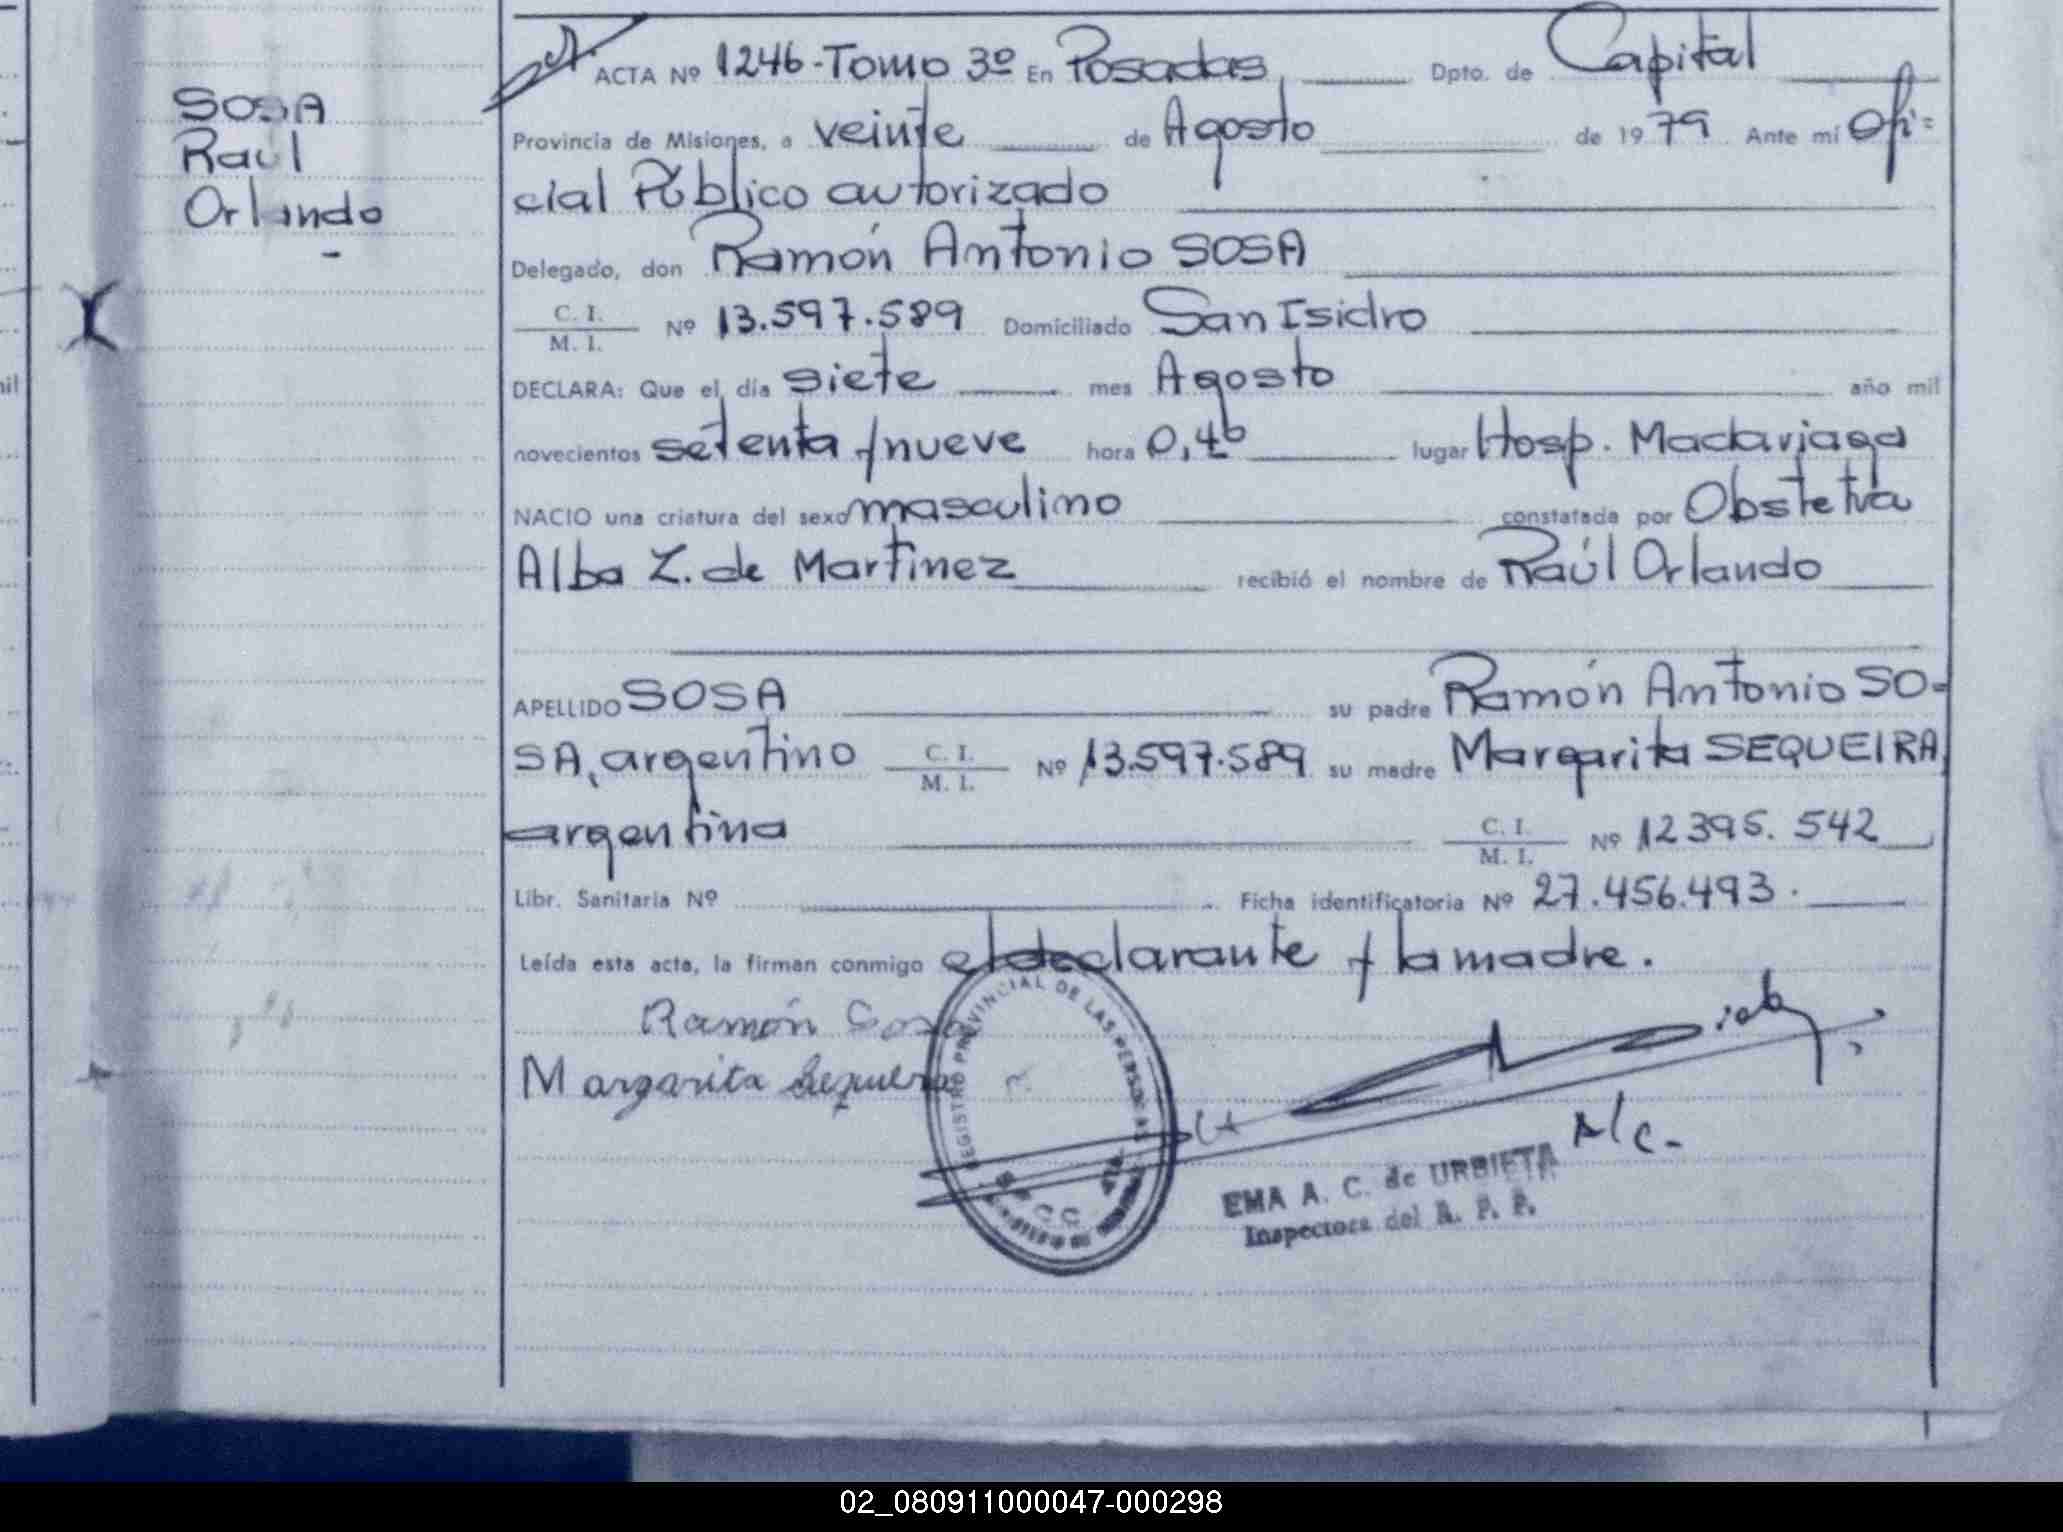 SOSA
Raúl
Orlando
-
ACTA Nº 1246-Tomo 3º En Posadas Dpto. de Capital
Provincia de Misiones, a veinte de Agosto de 1979 Ante mí Ofi=
cial Público autorizado
Delegado, don Ramón Antonio SOSA
C. I.
M. I.
Nº 13.597.589 Domiciliado San Isidro
DECLARA: Que el día siete mes Agosto año mil
novecientos setenta y nueve hora 0,40 lugar Hosp. Madariaga
NACIO una criatura del sexo masculino constatada por Obstetra
Alba Z. de Martinez recibió el nombre de Raúl Orlando
APELLIDO SOSA su padre Ramón Antonio SO=
SA, argentino C. I. M. I. Nº 13.597.589 su madre Margarita SEQUEIRA,
argentina C. I. M. I. Nº 12395.542
Libr. Sanitaria Nº Ficha identificatoria Nº 27.456.493.
Leída esta acta, la firman conmigo el declarante y la madre.
Ramón Sosa
Margarita Sequera
REGISTRO PROVINCIAL DE LAS PERSONAS
A/C-
EMA A. C. de URBIETA
Inspectora del R. P. P.
mil
02_080911000047-000298